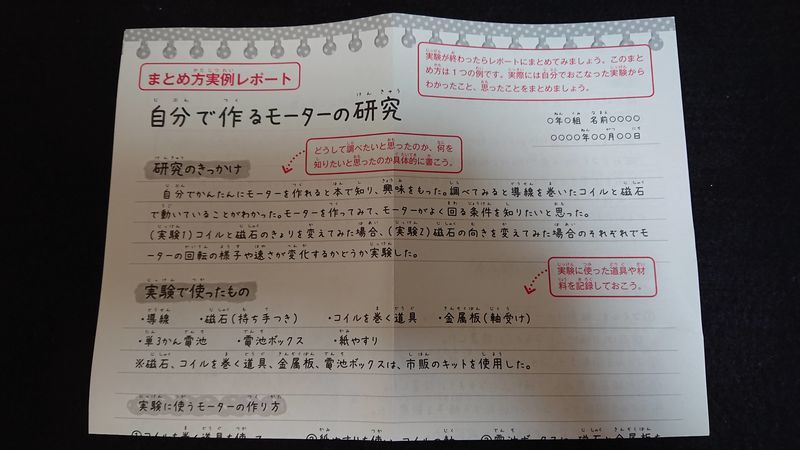 まとめ方実例レポート
実験が終わったらレポートにまとめてみましょう。このまと
め方は1つの例です。実際には自分でおこなった実験から
わかったこと、思ったことをまとめましょう。
自分で作るモーターの研究
○年○組 名前○○○○
○○○○年○○月○○日
どうして調べたいと思ったのか、何を
知りたいと思ったのか具体的に書こう。
研究のきっかけ
自分でかんたんにモーターを作れると本で知り、興味をもった。調べてみると導線を巻いたコイルと磁石
で動いていることがわかった。モーターを作ってみて、モーターがよく回る条件を知りたいと思った。
(実験1)コイルと磁石のきょりを変えてみた場合、(実験2)磁石の向きを変えてみた場合のそれぞれでモ
ーターの回転の様子や速さが変化するかどうか実験した。
実験に使った道具や材
料を記録しておこう。
実験で使ったもの
・導線 ・磁石(持ち手つき) ・コイルを巻く道具 ・金属板(軸受け)
・単3かん電池 ・電池ボックス ・紙やすり
※磁石、コイルを巻く道具、金属板、電池ボックスは、市販のキットを使用した。
実験に使うモーターの作り方